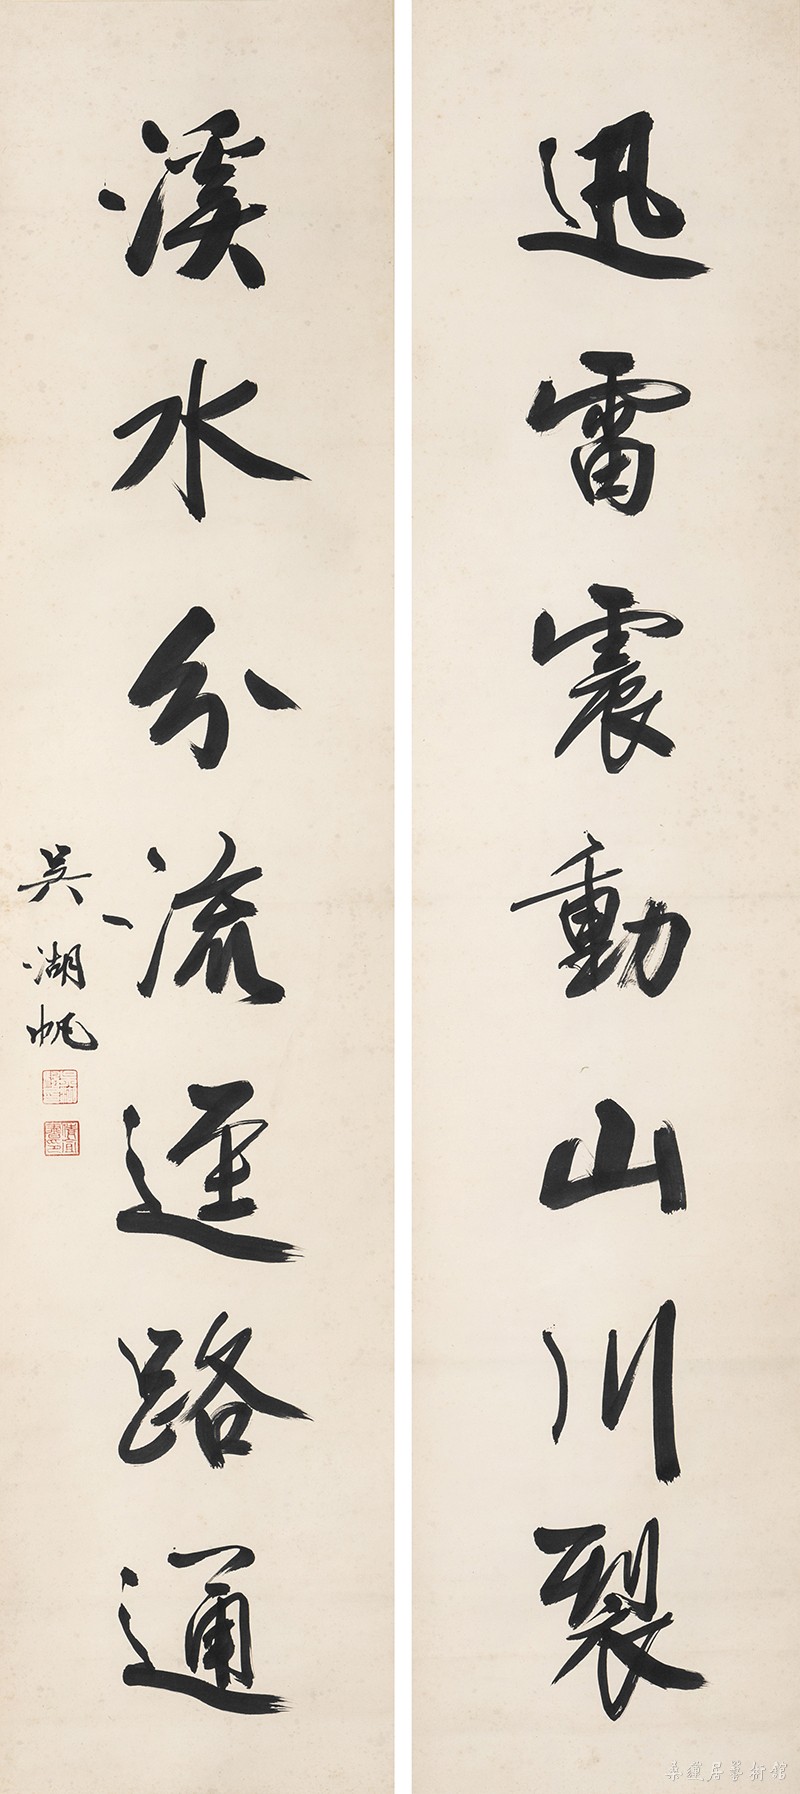 迅雷震動山川裂
溪水分流逕路通
吳湖帆
居藝術館